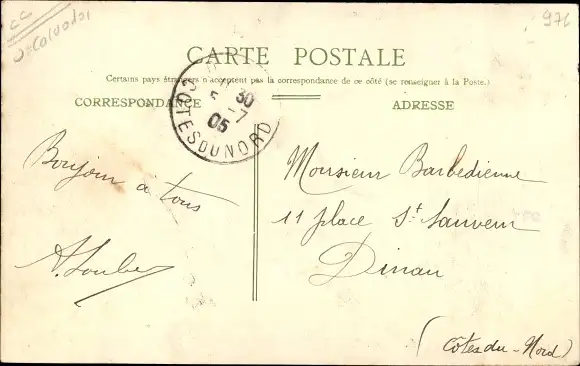 CC
Calvados
976
CARTE POSTALE
Certains pays étrangers n'acceptent pas la correspondance de ce côté (se renseigner à la Poste.)
CORRESPONDANCE
ADRESSE
30
-7
05
COTES DU NORD
Bonjour à tous
Monsieur Barbedienne
11 place St Sauveur
Dinan
(Côtes du-Nord)